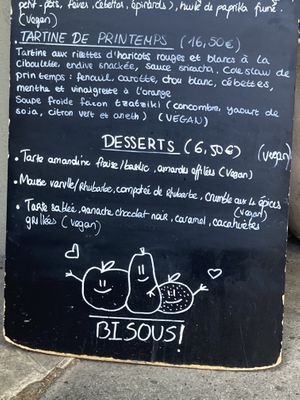 petit-pois, fèves, cébettes, épinards), huile de paprika fumé.
(vegan)
TARTINE DE PRINTEMPS (16,50€)
Tartine aux rillettes d'haricots rouges et blancs à la
ciboulette, endive snackée, sauce sriracha, coleslaw de
printemps : fenouil, carotte, chou blanc, cébettes,
menthe et vinaigrette à l'orange
Soupe froide façon tzatziki (concombre, yaourt de
soja, citron vert et aneth) (VEGAN)
DESSERTS (6,50€) (vegan)
• Tarte amandine fraise/basilic, amandes effilées (vegan)
• Mousse vanille/rhubarbe, compotée de rhubarbe, crumble aux 4 épices
(vegan)
• Tarte sablée, ganache chocolat noir, caramel, cacahuètes
grillées (vegan)
BISOUS!